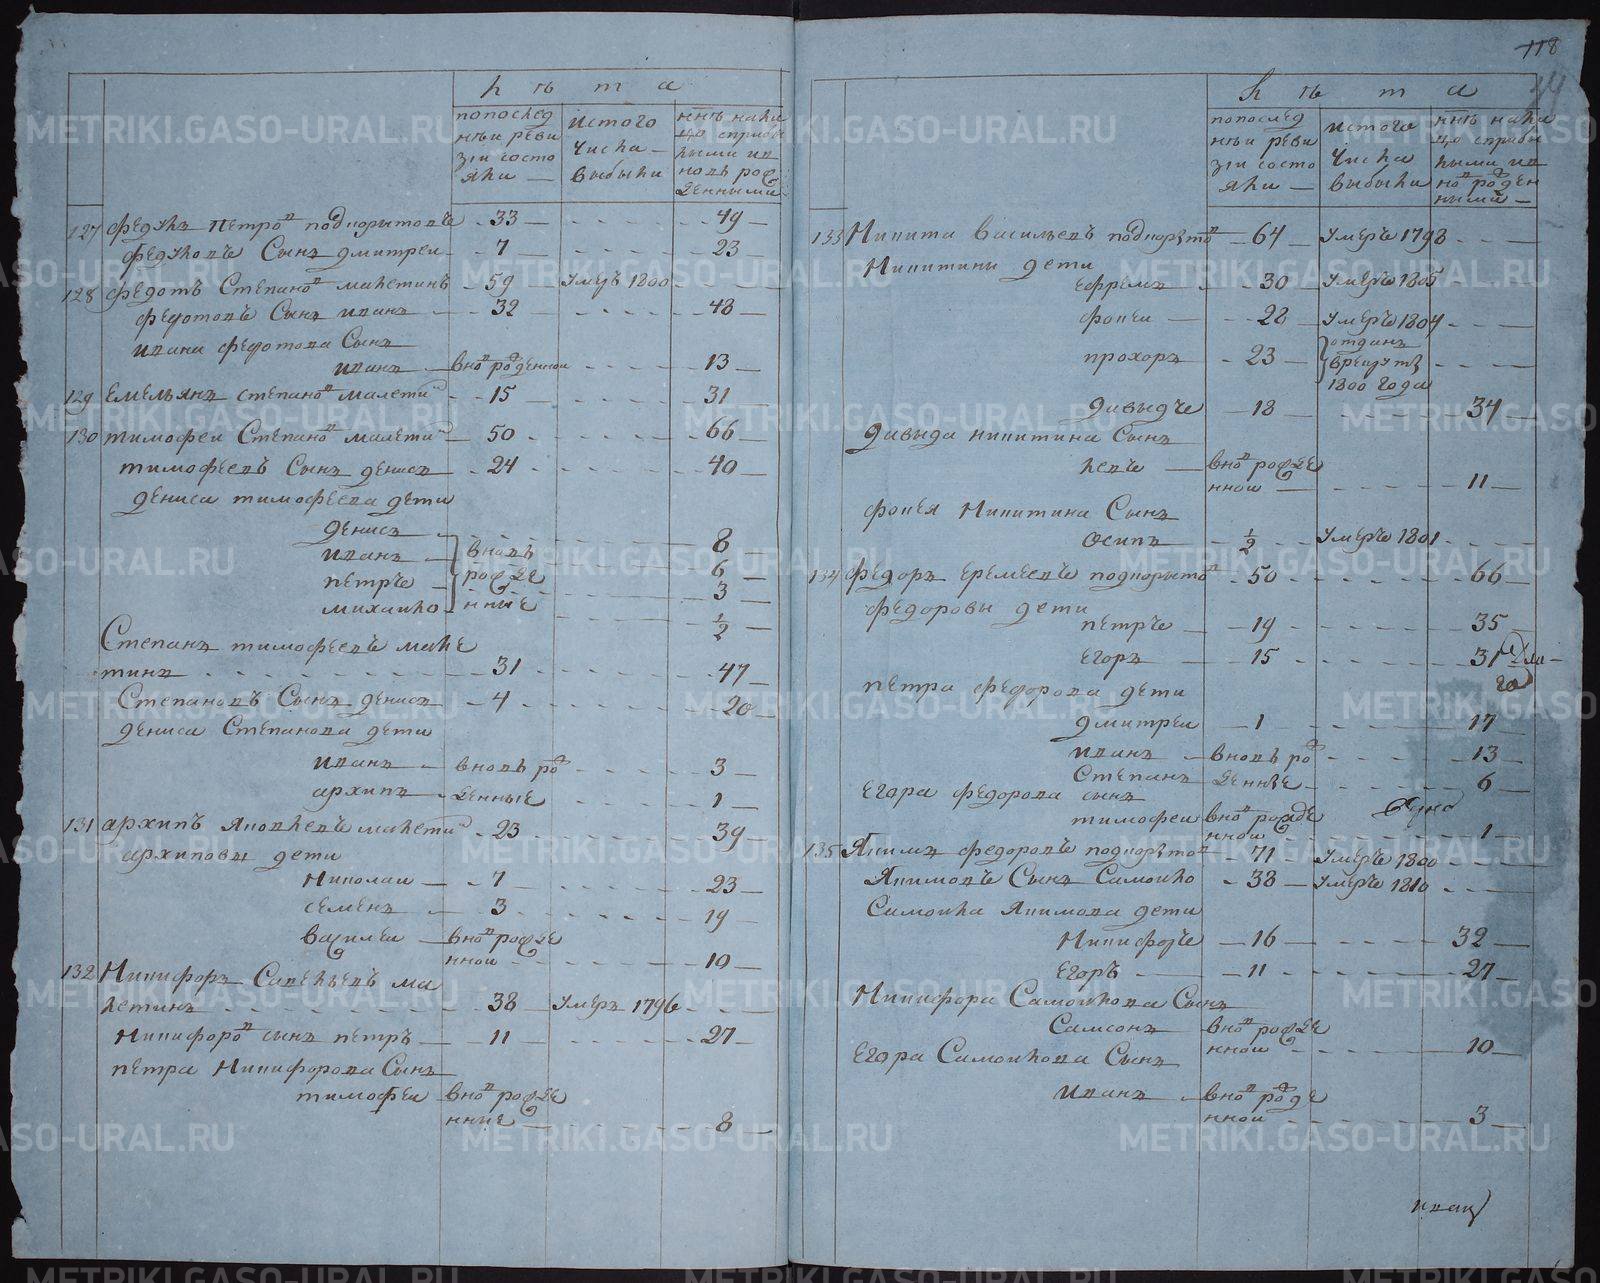 лѣта
по последней ревизіи состояли
ис того числа выбыли
нне на лицо с прибылыми и вновь рожденными
127 Федулъ Петровъ Подкорытовъ 33 49
Федуловъ Сынъ Дмитреи 7 23
128 Федотъ Степановъ Малетинъ 59 умеръ 1800
Федотовъ Сынъ Иванъ 32 48
Ивана Федотова Сынъ
Иванъ вновь рожденнои 13
129 Емельянъ Степановъ Малетинъ 15 31
130 Тимофеи Степановъ Малетинъ 50 66
Тимофеевъ Сынъ Денисъ 24 40
Дениса Тимофеева дети
Денисъ 8
Иванъ вновь 6
Петръ рожде 3
Михаило нные ½
Степанъ Тимофеевъ Мале
тинъ 31 47
Степановъ Сынъ Денисъ 4 20
Дениса Степанова дети
Иванъ вновь рож 3
Архипъ денные 1
131 Архипъ Яковлевъ Малетинъ 23 39
Архиповы дети
Николаи 7 23
Семенъ 3 19
Василеи вновь рожде
ннои 10
132 Никифоръ Савельевъ Ма
летинъ 38 умеръ 1796
Никифоровъ сынъ Петръ 11 27
Петра Никифорова Сынъ
Тимофеи вновь рожде
нные 8
118
34
лѣта
по последней ревизіи состояли
ис того числа выбыли
нне на лицо с прибылыми и вновь рожденными
133 Никита Васильевъ Подкорытовъ 64 умеръ 1793
Никитины дети
Ефремъ 30 умеръ 1805
Фокеи 28 умеръ 1804
Прохоръ 23 отданъ
в рекруты
1800 года
Давыдъ 18 34
Давыда Никитина Сынъ
Левъ вновь рожде
ннои 11
Фокея Никитина Сынъ
Осипъ ½ умеръ 1801
134 Федоръ Еремеевъ Подкорытовъ 50 66
Федоровы дети
Петръ 19 35
Егоръ 15 31
Петра Федорова дети
Дмитреи 1 17
Иванъ вновь рож 13
Степанъ денные 6
Егора Федорова сынъ
Тимофеи вновь рожде
ннои 1
135 Якимъ Федоровъ Подкорытовъ 71 умеръ 1800
Якимовъ Сынъ Самоило 38 умеръ 1810
Самоила Якимова дети
Никифоръ 16 32
Егоръ 11 27
Никифора Самоилова Сынъ
Самсонъ вновь рожде
ннои 10
Егора Самоилова Сынъ
Иванъ вновь рожде
ннои 3
METRIKI.GASO-URAL.RU